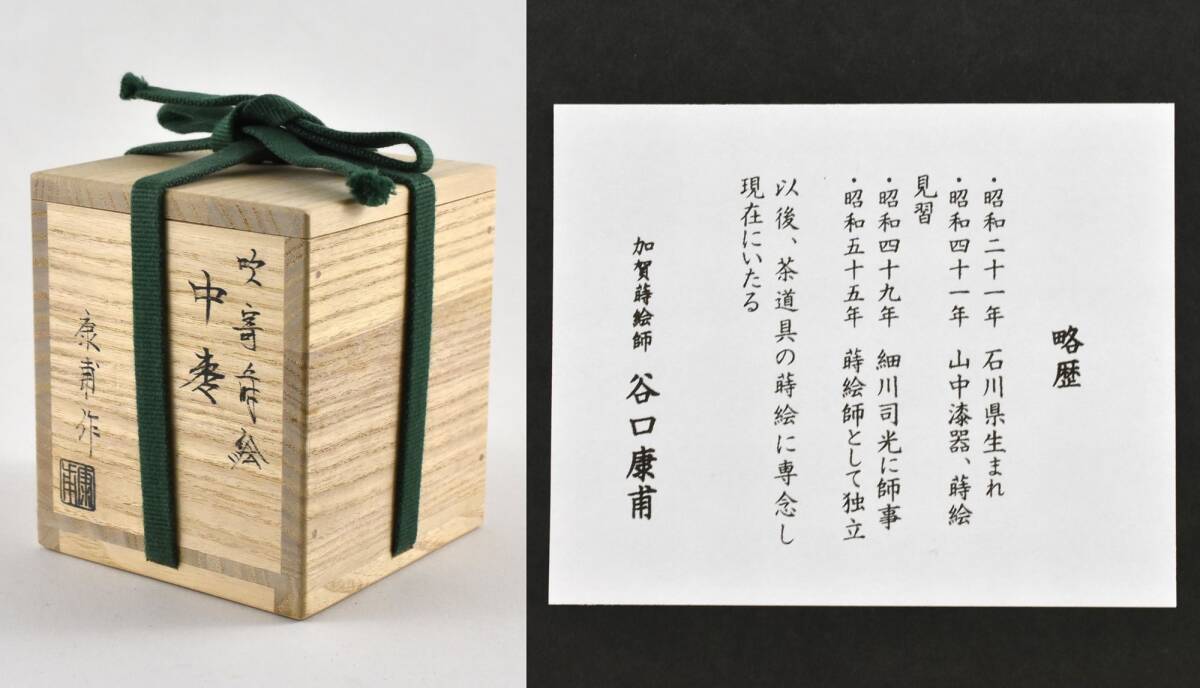 吹寄蒔絵
中棗
康甫作
康甫
略歴
・昭和二十一年 石川県生まれ
・昭和四十一年 山中漆器、蒔絵
見習
・昭和四十九年 細川司光に師事
・昭和五十五年 蒔絵師として独立
以後、茶道具の蒔絵に専念し
現在にいたる
加賀蒔絵師 谷口康甫